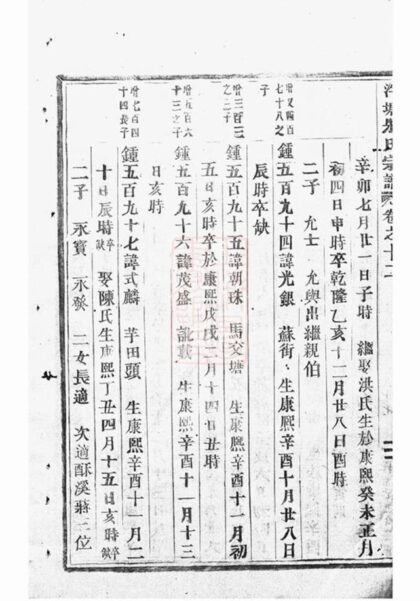 宗譜卷之十二
辛卯七月廿一日子時 繼娶洪氏生於康熙癸未正月
初四日申時卒乾隆乙亥十二月廿八日酉時
二子 允士 允與出繼親伯
增又四百七十八之子
鍾五百九十四諱光銀 蘇街 生康熙辛酉十月廿八日
辰時卒缺
增三百三之二子
鍾五百九十五諱朝珠 馬交塘 生康熙辛酉十二月初
五日亥時卒於康熙戊戌二月十四日丑時
增五百六十三之子
鍾五百九十六諱茂盛 訛載 生康熙辛酉十一月十三
日亥時
增七百四十四長子
鍾五百九十七諱式麟 芋田頭 生康熙辛酉十一月二
十日辰時卒缺 娶陳氏生康熙丁丑四月十五日亥時卒缺
二子 永寶 永發 二女長適 次適酥溪蔣三位